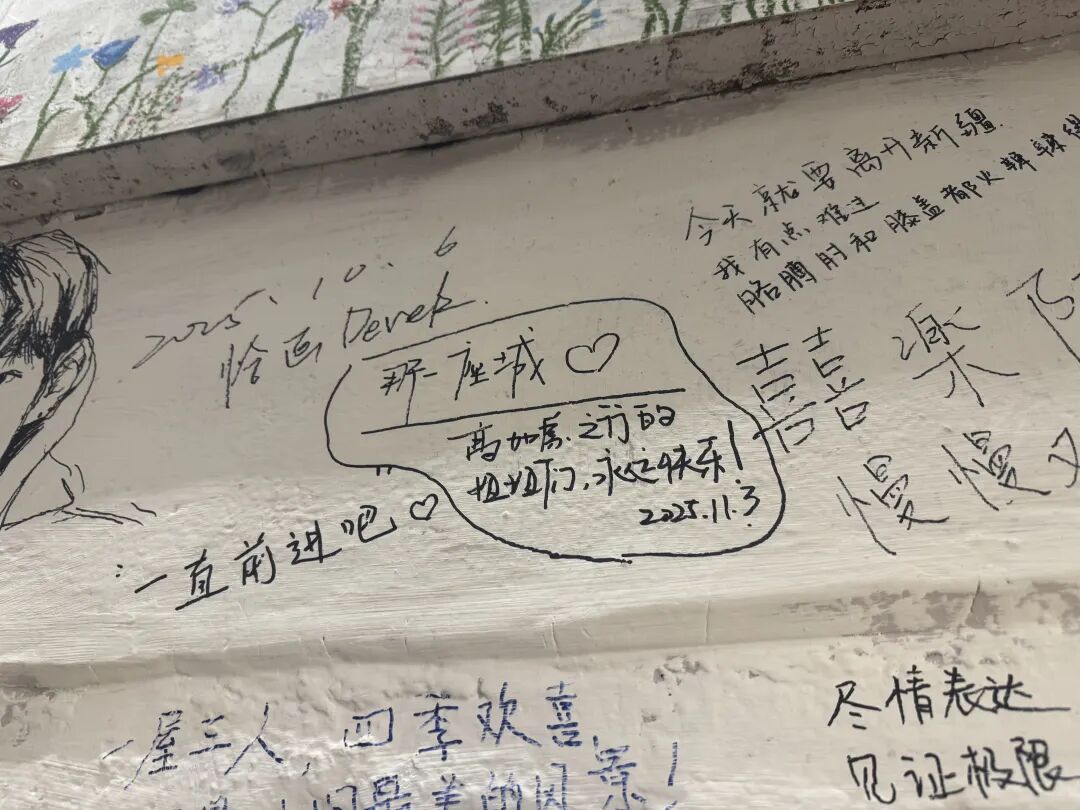 今天就要离开新疆
我有点难过
胳膊肘和膝盖都火辣辣
2025.10.6
绘画Derek.
那一座城♡
高加索之行的
姐姐们,永远快乐!
2025.11.3
囍 乐
慢慢
一直前进吧♡
一屋三人,四季欢喜,
人间最美的风景!
尽情表达
见证极限